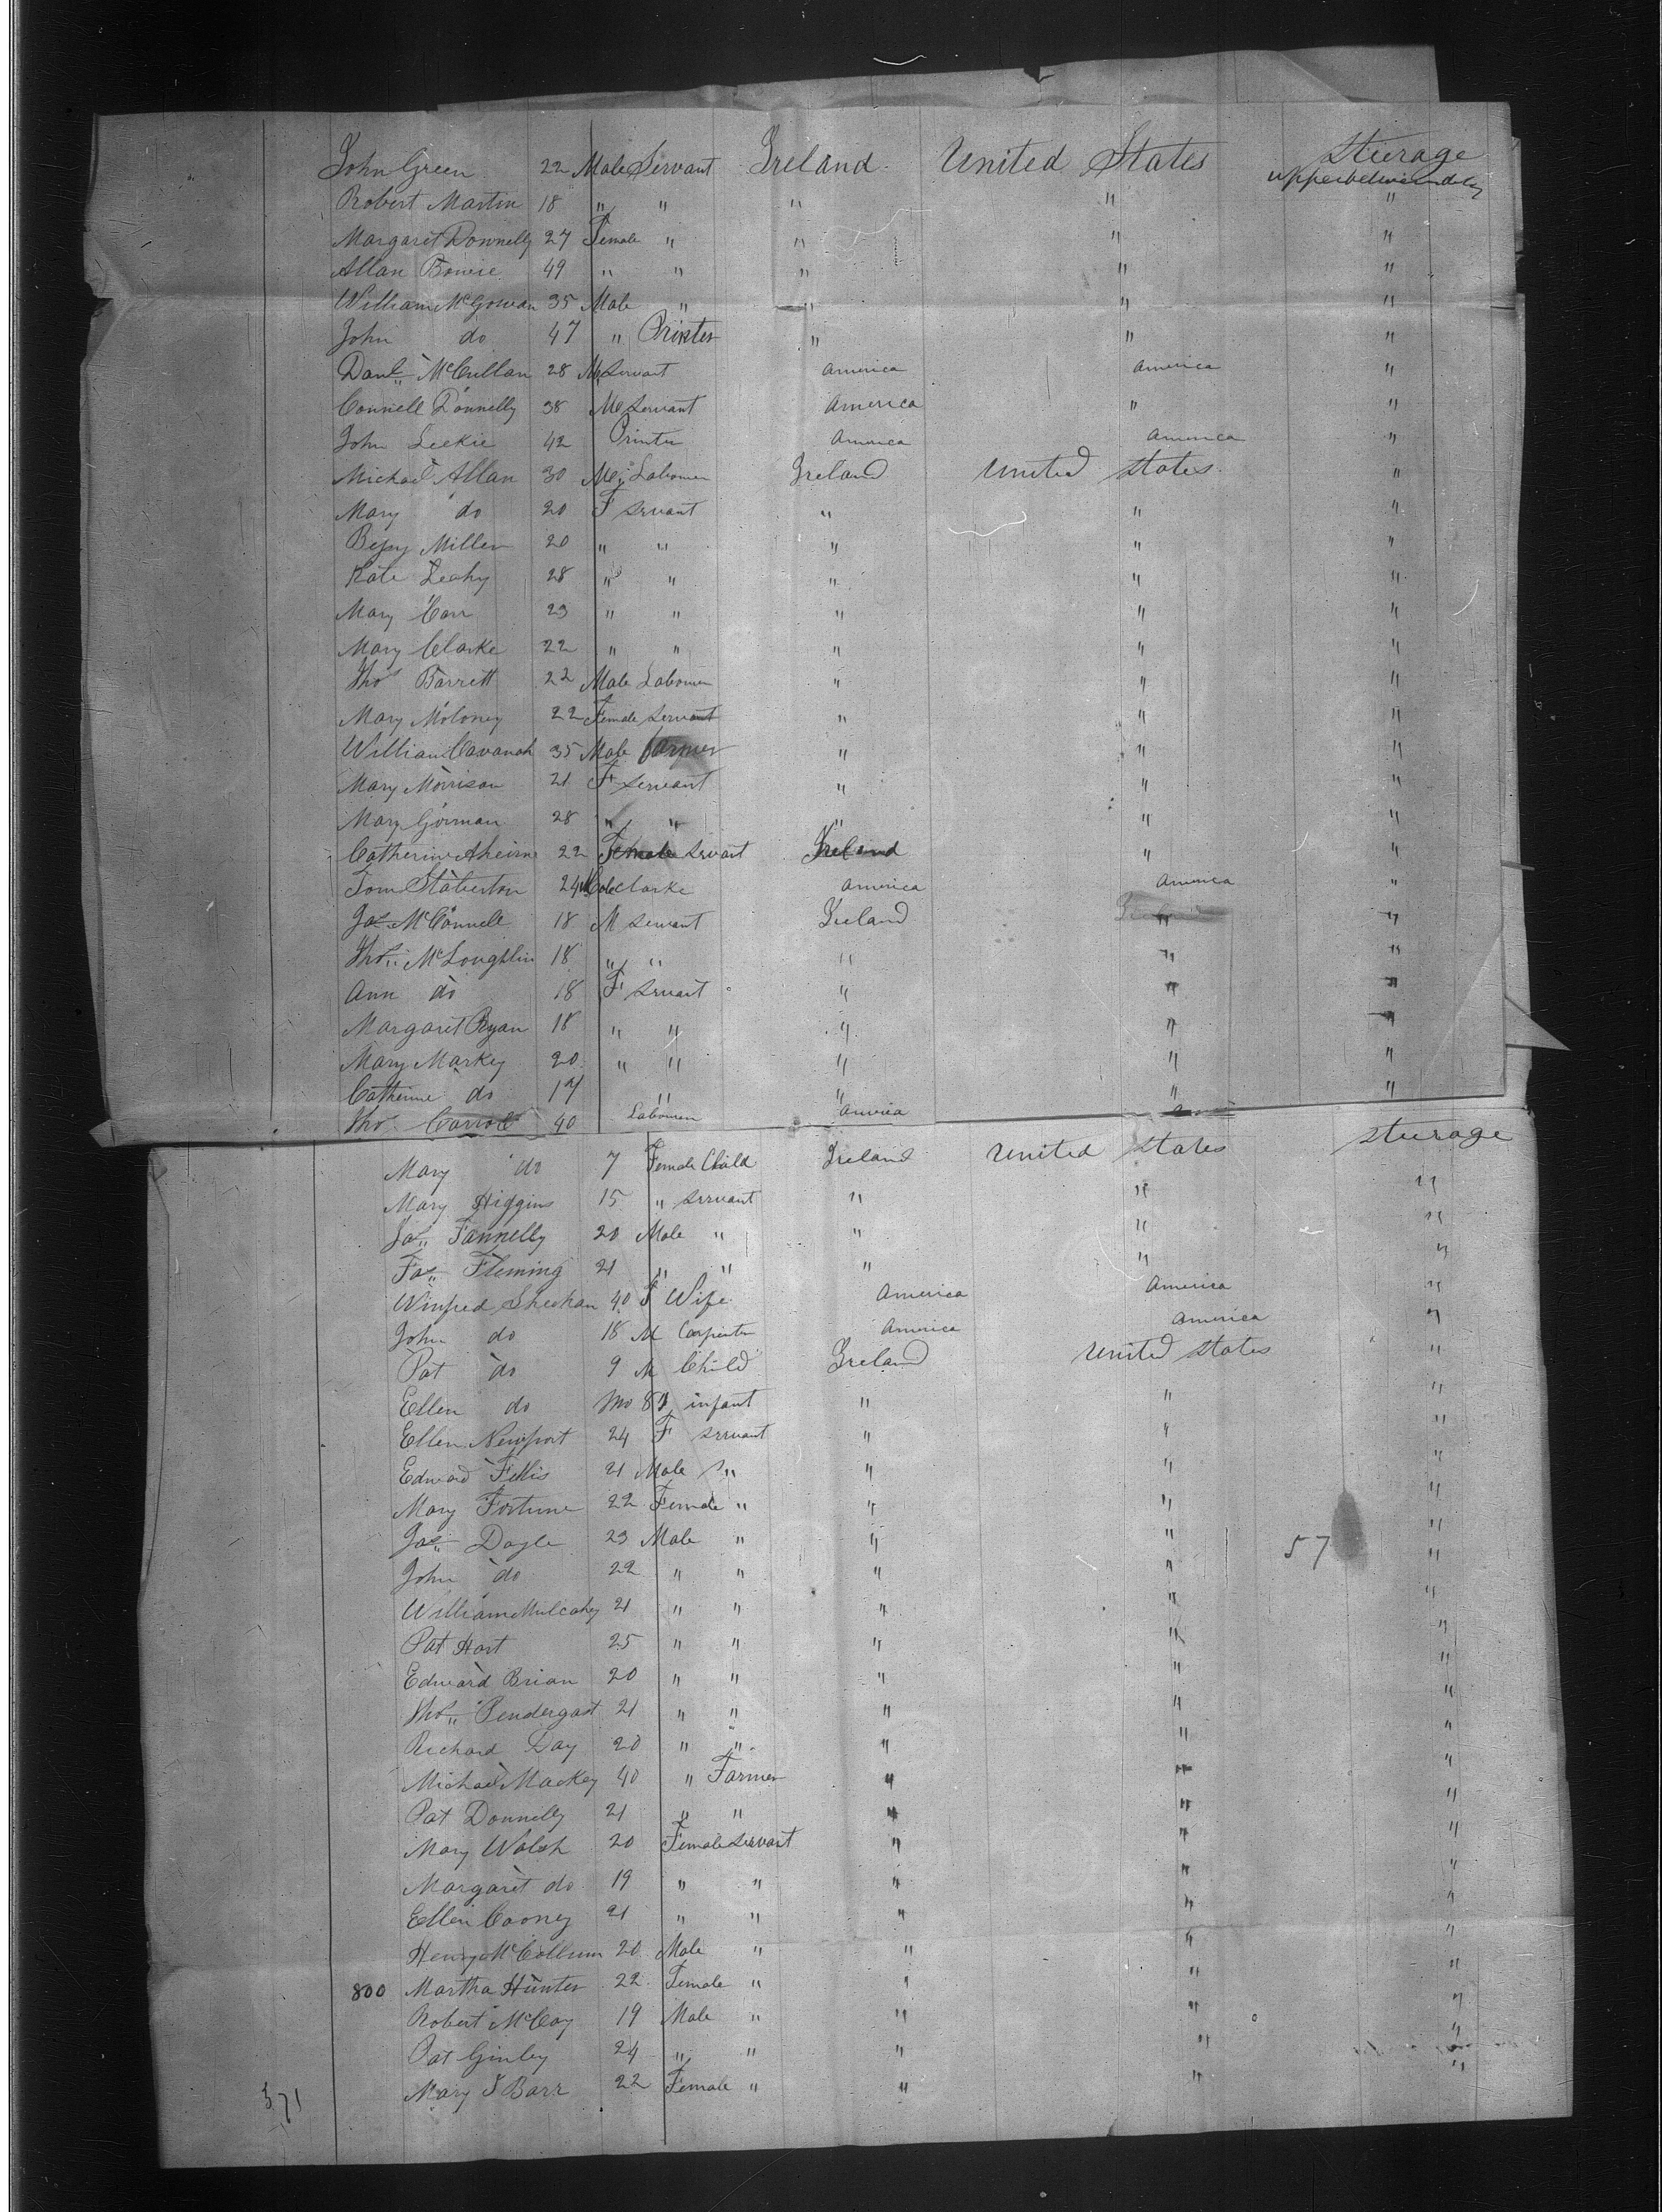 John Green 22 Male Servant Ireland United States Sturage
upperbetweendeks
Robert Martin 18 " " " " "
Margaret Donnelly 27 Female " " " "
Allan Bowie 49 " " " " "
William McGowan 35 Male " " " "
John do 47 " Printer " " "
Danl McCullan 28 M Servant America America "
Connell Donnelly 38 M Servant America " "
John Leckie 42 Printer America America "
Michael Allan 30 M Labourer Ireland United States "
Mary do 20 F Servant " " "
Bessy Miller 20 " " " " "
Kate Leahy 28 " " " " "
Mary Carr 23 " " " " "
Mary Clarke 22 " " " " "
Thos Barrett 22 Male Labourer " " "
Mary Moloney 22 Female Servant " " "
William Cavanah 35 Male Farmer " " "
Mary Morrison 21 F Servant " " "
Mary Gorman 28 " " " " "
Catherine Aheirn 22 Female Servant Ireland " "
Tom Staberton 24 Male Clarke America America "
Jas McConnell 18 M Servant Ireland " "
Thos McLoughlin 18 " " " " "
Ann do 18 F Servant " " "
Margaret Ryan 18 " " " " "
Mary Markey 20 " " " " "
Catherine do 17 " " " "
Thos Carroll 40 Labourer America
Mary do 7 Female Child Ireland United States Sturage
Mary Higgins 15 " Servant " " "
Jas Fannelly 20 Male " " " "
Jas Fleming 21 " " " " "
Winfred Sheehan 40 F Wife America America "
John do 18 M Carpenter America America "
Pat do 9 M Child Ireland United States "
Ellen do Mo 8 infant " " "
Ellen Newport 24 F Servant " " "
Edward Fellis 21 Male " " " "
Mary Fortune 22 Female " " " "
Jas Doyle 23 Male " " " 57 "
John do 22 " " " " "
William Mulcahy 21 " " " " "
Pat Hart 25 " " " " "
Edward Brian 20 " " " " "
Thos Pendergast 21 " " " " "
Richard Day 20 " " " " "
Michael Mackey 40 " Farmer " " "
Pat Donnelly 21 " " " " "
Mary Walsh 20 Female Servant " " "
Margaret do 19 " " " " "
Ellen Cooney 21 " " " " "
Henry McCollum 20 Male " " " "
800 Martha Hunter 22 Female " " " "
Robert McCay 19 Male " " " "
Pat Ginley 24 " " " " "
Mary J Barr 22 Female " " " "
571